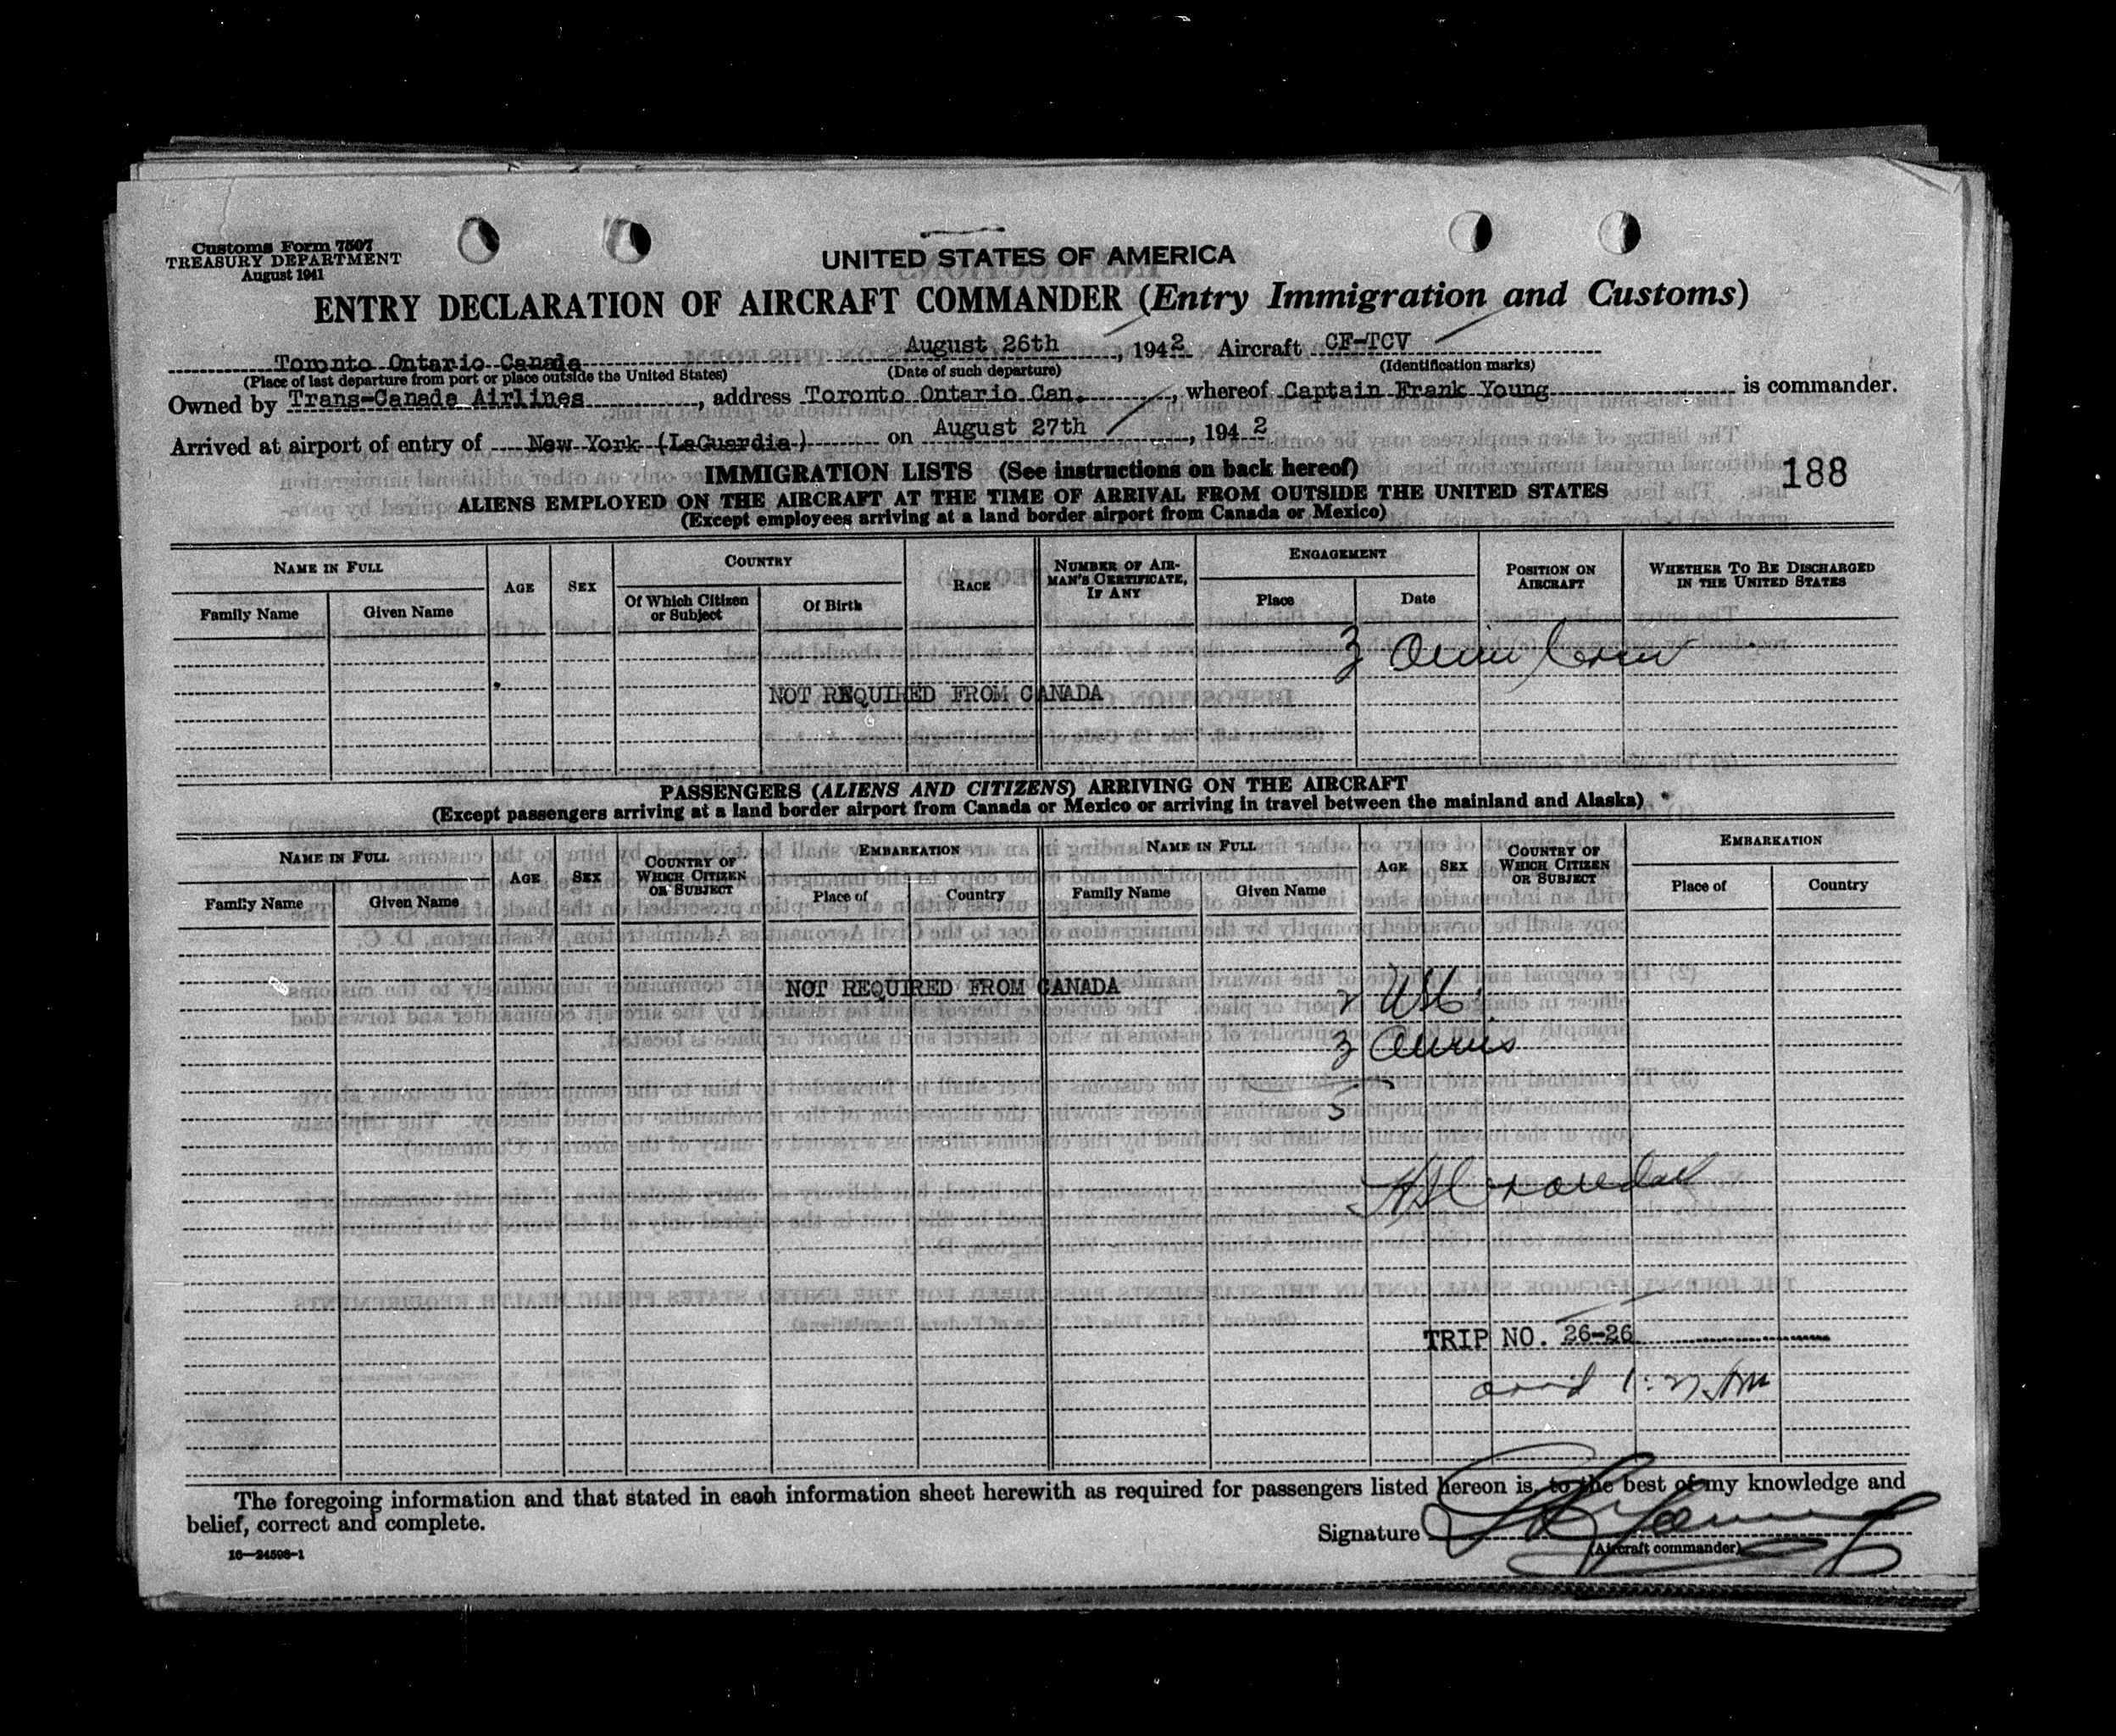 Customs Form 7507
TREASURY DEPARTMENT
August 1941
UNITED STATES OF AMERICA
ENTRY DECLARATION OF AIRCRAFT COMMANDER (Entry Immigration and Customs)
Toronto Ontario Canada August 26th, 1942 Aircraft CF-TCV
(Place of last departure from port or place outside the United States) (Date of such departure) (Identification marks)
Owned by Trans-Canada Airlines, address Toronto Ontario Can., whereof Captain Frank Young is commander.
Arrived at airport of entry of New York (LaGuardia) on August 27th, 1942
188
IMMIGRATION LISTS (See instructions on back hereof)
ALIENS EMPLOYED ON THE AIRCRAFT AT THE TIME OF ARRIVAL FROM OUTSIDE THE UNITED STATES
(Except employees arriving at a land border airport from Canada or Mexico)
NAME IN FULL AGE SEX COUNTRY RACE NUMBER OF AIRMAN'S CERTIFICATE, IF ANY ENGAGEMENT POSITION ON AIRCRAFT WHETHER TO BE DISCHARGED IN THE UNITED STATES
Family Name Given Name Of Which Citizen or Subject Of Birth Place Date
3 Crew
NOT REQUIRED FROM CANADA
PASSENGERS (ALIENS AND CITIZENS) ARRIVING ON THE AIRCRAFT
(Except passengers arriving at a land border airport from Canada or Mexico or arriving in travel between the mainland and Alaska)
NAME IN FULL AGE SEX COUNTRY OF WHICH CITIZEN OR SUBJECT EMBARKATION NAME IN FULL AGE SEX COUNTRY OF WHICH CITIZEN OR SUBJECT EMBARKATION
Family Name Given Name Place of Country Family Name Given Name Place of Country
NOT REQUIRED FROM CANADA
2
3
5
TRIP NO. 26-26
The foregoing information and that stated in each information sheet herewith as required for passengers listed hereon is, to the best of my knowledge and
belief, correct and complete.
Signature
(Aircraft commander)
16—24598-1